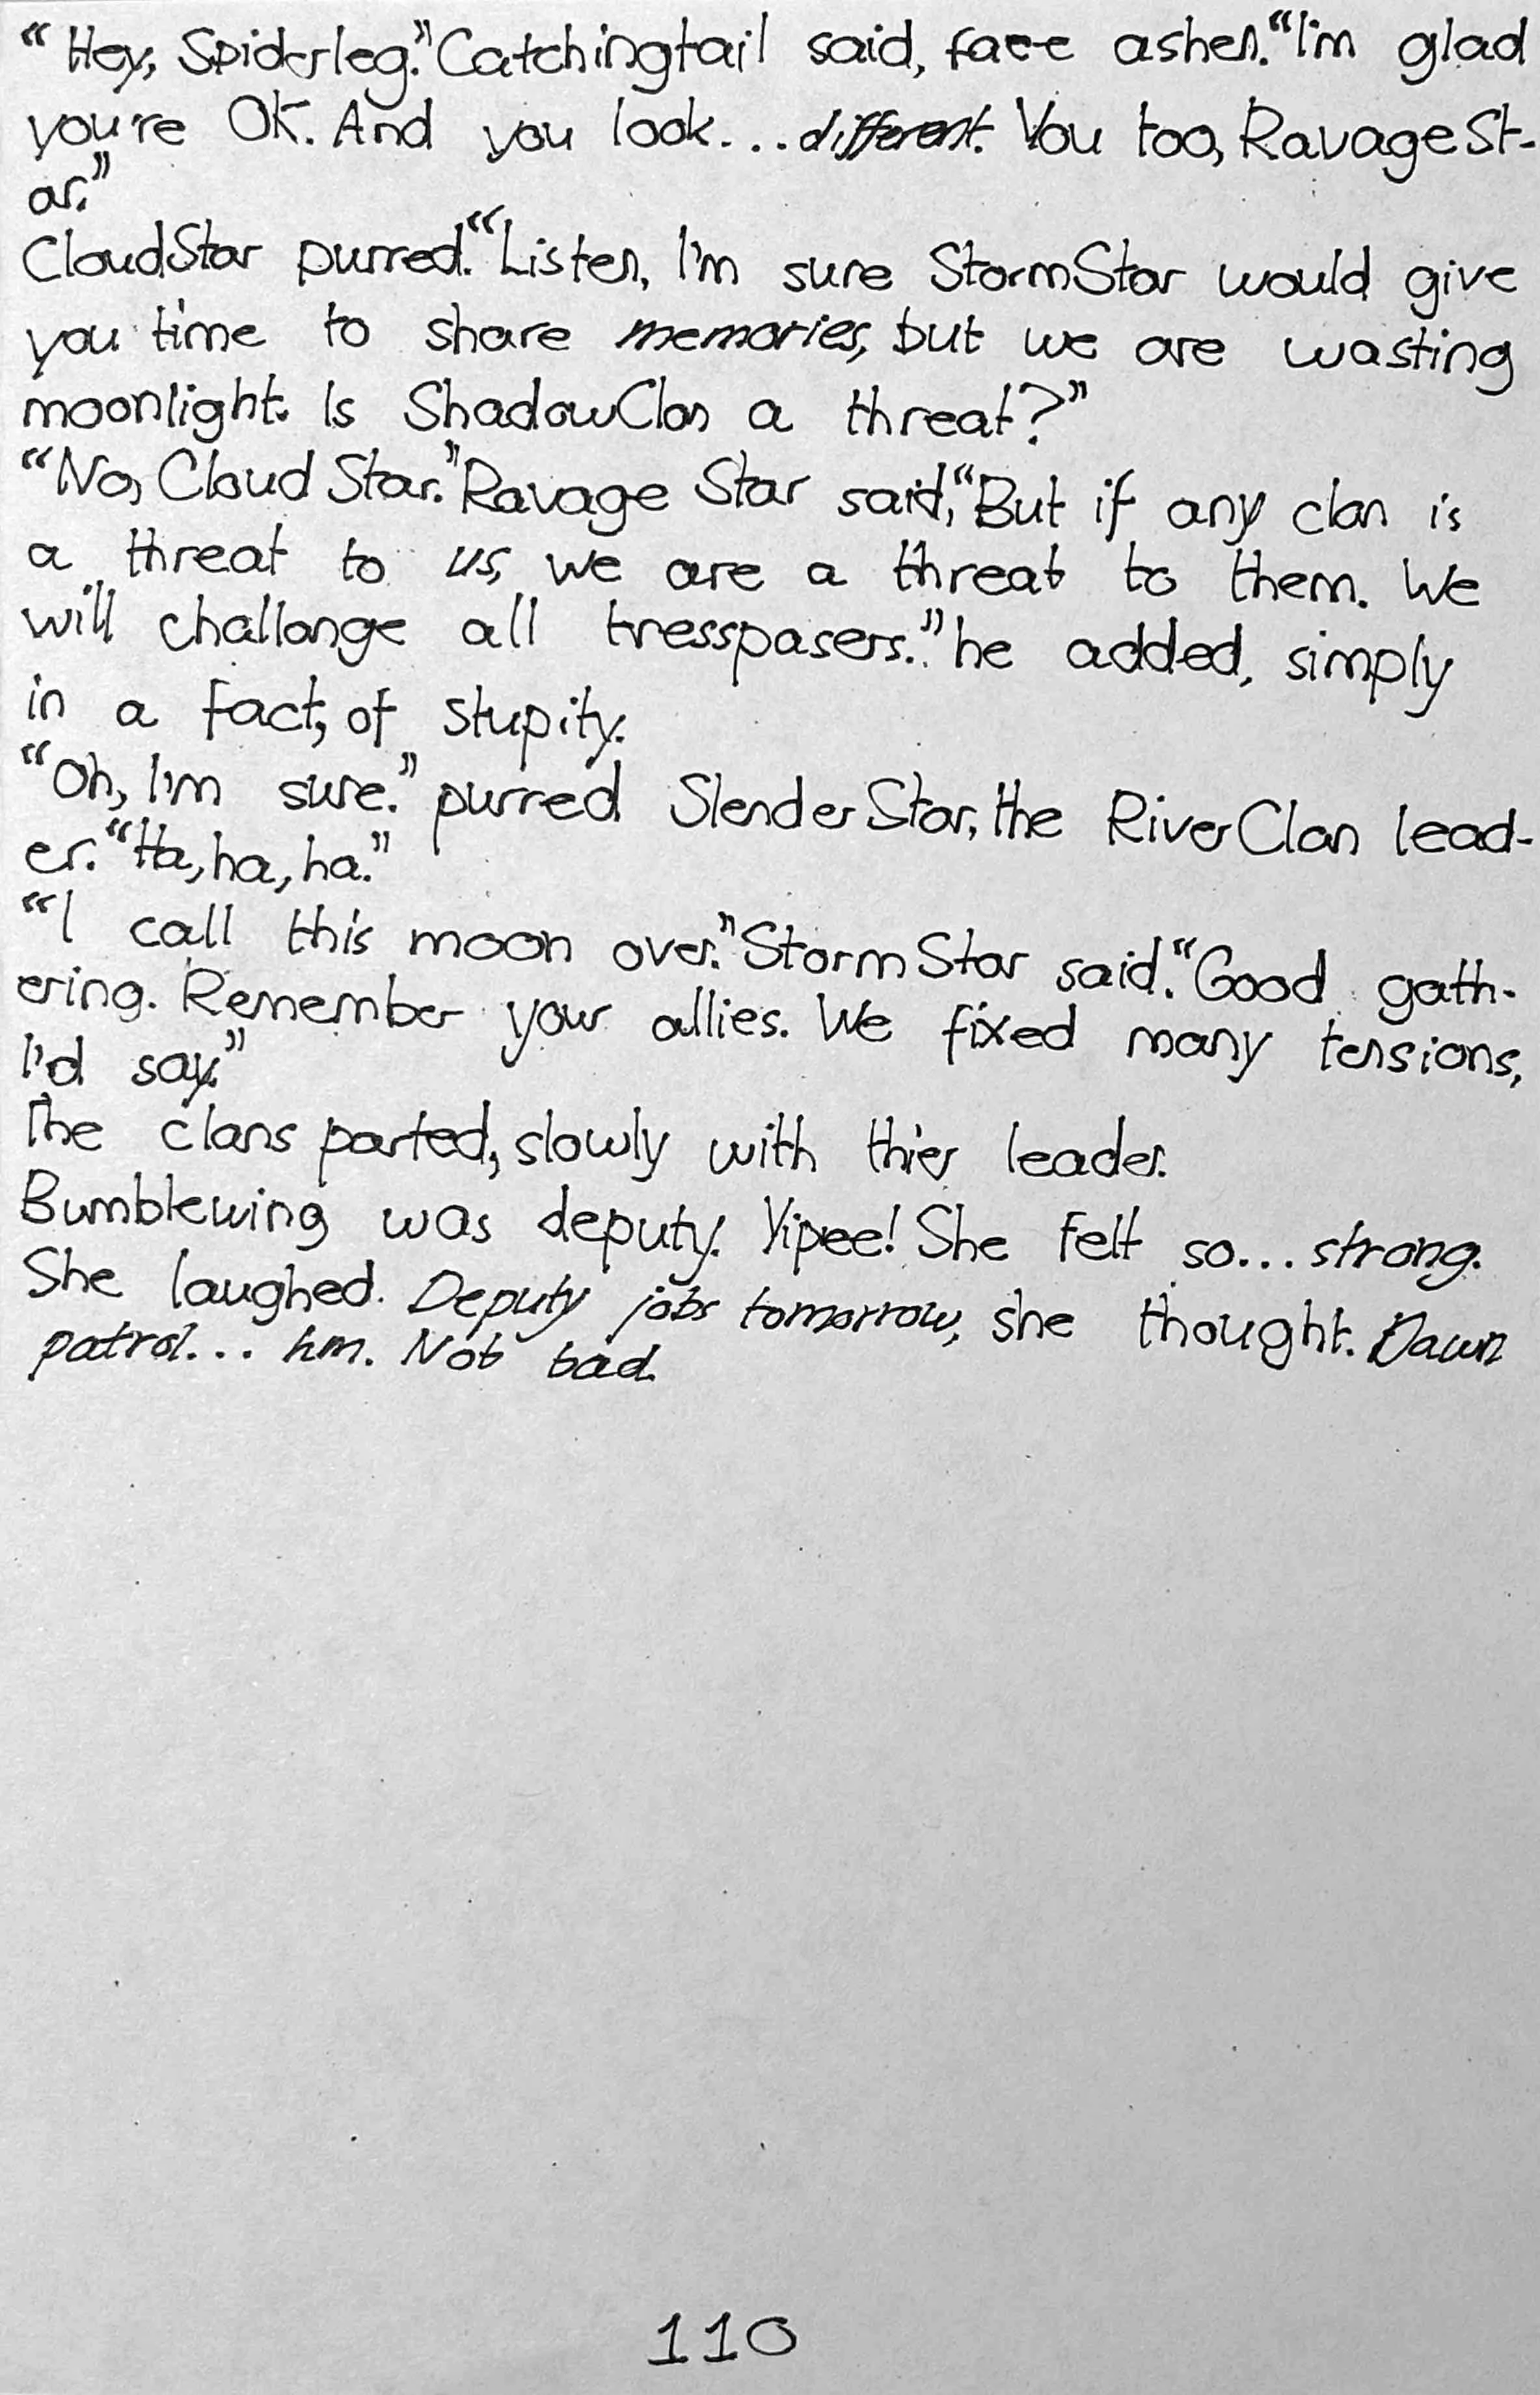 “Hey, Spiderleg.” Catchingtail said, face ashen. “I'm glad
you're OK. And you look... different. You too, RavageSt-
ar.”
CloudStar purred. “Listen, I'm sure StormStar would give
you time to share memories, but we are wasting
moonlight. Is ShadowClan a threat?”
“No, Cloud Star.” Ravage Star said, “But if any clan is
a threat to us, we are a threat to them. We
will challange all tresspasers.” he added, simply
in a fact, of stupity.
“Oh, I'm sure.” purred Slender Star, the RiverClan lead-
er. “Ha, ha, ha.”
“I call this moon over.” Storm Star said. “Good gath-
ering. Remember your allies. We fixed many tensions,
I'd say.”
The clans parted, slowly with thier leader.
Bumblewing was deputy. Yipee! She felt so... strong.
She laughed. Deputy jobs tomorrow, she thought. Dawn
patrol... hm. Not bad.
110